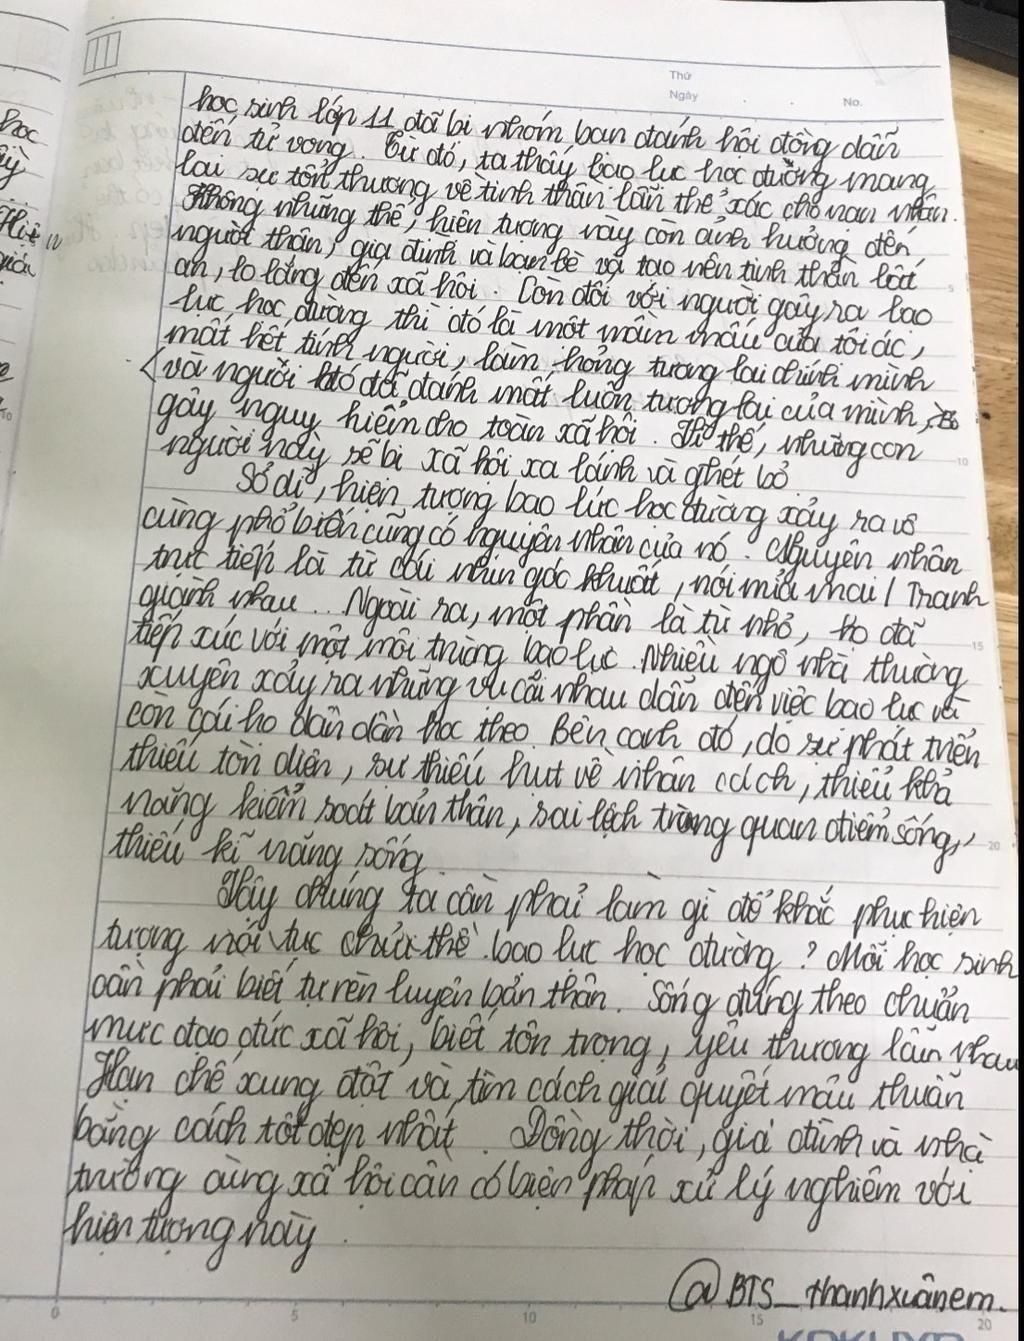 Thứ
Ngày . . No.
học sinh lớp 11 đã bị nhóm bạn đánh hội đồng dẫn
đến tử vong. Từ đó, ta thấy bạo lực học đường mang
lại sự tổn thương về tinh thần lẫn thể xác cho nạn nhân.
Không những thế, hiện tượng này còn ảnh hưởng đến
người thân, gia đình và bạn bè và tạo nên tinh thần bất
an, lo lắng đến xã hội. Còn đối với người gây ra bạo
lực học đường thì đó là một mầm mấu của tội ác,
mất hết tính người, làm hỏng tương lai chính mình
và người đó đã đánh mất luôn tương lai của mình,
gây nguy hiểm cho toàn xã hội. Vì thế, những con
người này sẽ bị xã hội xa lánh và ghét bỏ
Sở dĩ, hiện tượng bạo lức học đường xảy ra vô
cùng phổ biến cũng có nguyên nhân của nó. Nguyên nhân
trực tiếp là từ cái nhìn góc khuất, nói mỉa mai / Tranh
giành nhau.. Ngoài ra, một phần là từ nhỏ, họ đã
tiếp xúc với một môi trường bạo lực. Nhiều ngôi nhà thường
xuyên xảy ra những vụ cãi nhau dẫn đến việc bạo lực và
còn cái họ dần dần học theo. Bên cạnh đó, do sự phát triển
thiếu tòn diện, sự thiếu hụt về nhân cách, thiếu khả
năng kiểm soát bản thân, sai lệch trong quan điểm sống,
thiếu kĩ năng sống.
Vậy chúng ta cần phải làm gì để khắc phục hiện
tượng nối tục chửi thề bạo lực học đường? Mỗi học sinh
cần phải biết tự rèn luyện bản thân. Sống đúng theo chuẩn
mực đạo đức xã hội, biết tôn trọng, yêu thương lẫn nhau
Hạn chế xung đột và tìm cách giải quyết mâu thuẫn
bằng cách tốt đẹp nhất. Đồng thời, gia đình và nhà
trường cùng xã hội cần có biện pháp xử lý nghiêm với
hiện tượng này.
@BTS_thanhxuânem.
0 5 10 15 20